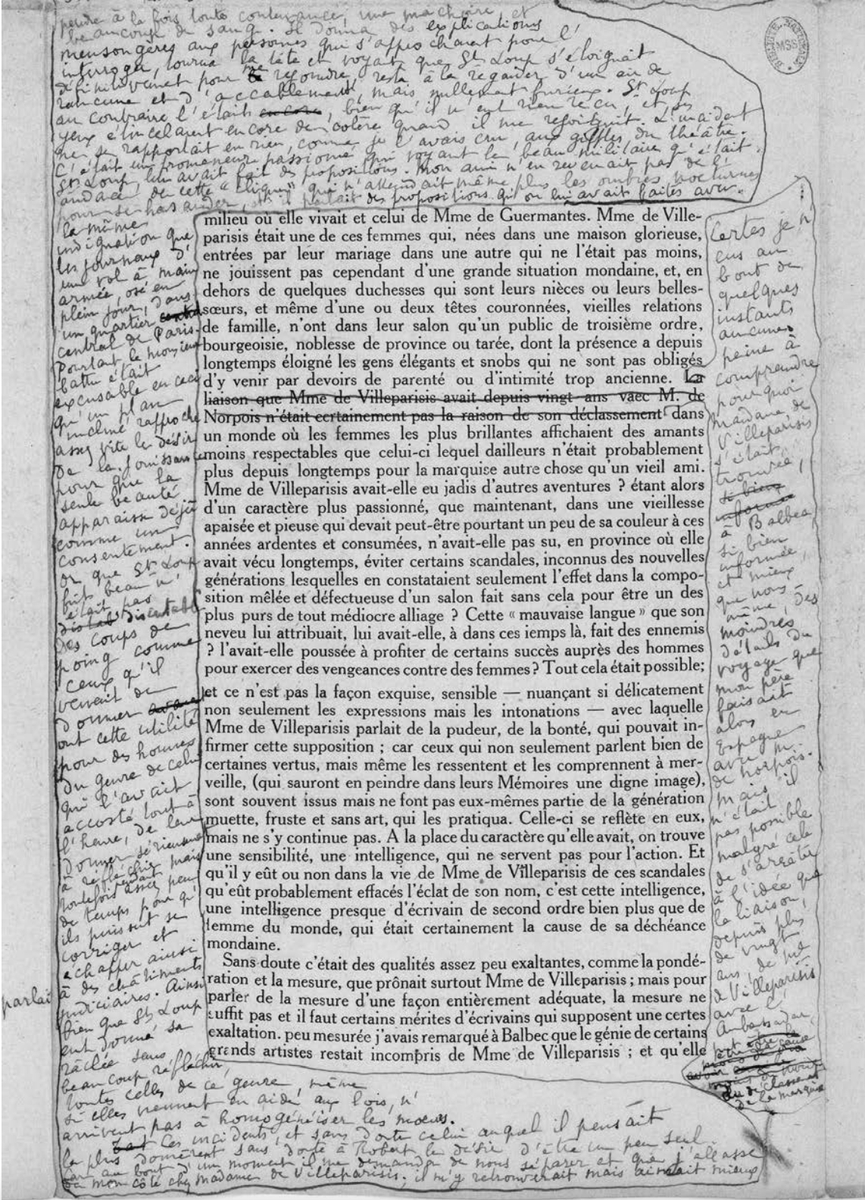 perdre à la fois toute contenance, une machoire, et
beaucoup de sang. Il donna des explications
mensongères aux personnes qui s'approchaient pour l'
interroger, tourna la tête et voyant que St Loup s'éloignait
définitivement pour me rejoindre, resta à le regarder d'un air de
rancune et d'accablement, mais nullement furieux. St Loup
au contraire l'était encore, bien qu'il n'eut rien reçu, et ses
yeux étincelaient encore de colère quand il me rejoignit. L'incident
ne se rapportait en rien, comme je l'avais cru, aux gifles du théâtre.
C'était un promeneur passionné qui voyant le beau militaire qu'était
St Loup, lui avait fait des propositions. Mon ami n'en revenait pas de l'
audace de cette "clique" qui n'attendait même plus les ombres nocturnes
pour se hasarder, et il parlait des propositions qu'on lui avait faites avec
la même
indignation que
les journaux d'
un vol à main
armée, osé en
plein jour, dans
un quartier
central de Paris.
Pourtant le monsieur
battu était
excusable en ceci
qu'un plan
incliné rapproche
assez vite le désir
de la jouissance
pour que la
seule beauté
apparaisse déjà
comme un
consentement.
Or que St Loup
fût beau n'
était pas
discutable
Des coups de
poing comme
ceux qu'il
venait de
donner
ont cette utilité
pour des hommes
du genre de celui
qui l'avait
accosté tout à
l'heure, de leur
donner sérieusement
à réfléchir mais
toutefois pendant assez peu
de temps pour qu'
ils puissent se
corriger et
échapper ainsi
à des châtiments
judiciaires. Ainsi
bien que St Loup
eut donné sa
râclée sans
beaucoup réfléchir,
toutes celles de ce genre, même
si elles viennent en aide aux lois, n'
arrivent pas à homogénéiser les mœurs.
Ces incidents, et sans doute celui auquel il pensait
le plus donnèrent sans doute à Robert le désir d'être un peu seul.
Car au bout d'un moment il me demanda de nous séparer et que j'allasse
de mon côté chez madame de Villeparisis. il m'y retrouverait mais aimait mieux
parlait
milieu où elle vivait et celui de Mme de Guermantes. Mme de Ville-
parisis était une de ces femmes qui, nées dans une maison glorieuse,
entrées par leur mariage dans une autre qui ne l'était pas moins,
ne jouissent pas cependant d'une grande situation mondaine, et, en
dehors de quelques duchesses qui sont leurs nièces ou leurs belles-
sœurs, et même d'une ou deux têtes couronnées, vieilles relations
de famille, n'ont dans leur salon qu'un public de troisième ordre,
bourgeoisie, noblesse de province ou tarée, dont la présence a depuis
longtemps éloigné les gens élégants et snobs qui ne sont pas obligés
d'y venir par devoirs de parenté ou d'intimité trop ancienne. La
liaison que Mme de Villeparisis avait depuis vingt ans vaec M. de
Norpois n'était certainement pas la raison de son déclassement dans
un monde où les femmes les plus brillantes affichaient des amants
moins respectables que celui-ci lequel dailleurs n'était probablement
plus depuis longtemps pour la marquise autre chose qu'un vieil ami.
Mme de Villeparisis avait-elle eu jadis d'autres aventures ? étant alors
d'un caractère plus passionné, que maintenant, dans une vieillesse
apaisée et pieuse qui devait peut-être pourtant un peu de sa couleur à ces
années ardentes et consumées, n'avait-elle pas su, en province où elle
avait vécu longtemps, éviter certains scandales, inconnus des nouvelles
générations lesquelles en constataient seulement l'effet dans la compo-
sition mêlée et défectueuse d'un salon fait sans cela pour être un des
plus purs de tout médiocre alliage ? Cette « mauvaise langue » que son
neveu lui attribuait, lui avait-elle, à dans ces iemps là, fait des ennemis
? l'avait-elle poussée à profiter de certains succès auprès des hommes
pour exercer des vengeances contre des femmes ? Tout cela était possible;
et ce n'est pas la façon exquise, sensible — nuançant si délicatement
non seulement les expressions mais les intonations — avec laquelle
Mme de Villeparisis parlait de la pudeur, de la bonté, qui pouvait in-
firmer cette supposition ; car ceux qui non seulement parlent bien de
certaines vertus, mais même les ressentent et les comprennent à mer-
veille, (qui sauront en peindre dans leurs Mémoires une digne image),
sont souvent issus mais ne font pas eux-mêmes partie de la génération
muette, fruste et sans art, qui les pratiqua. Celle-ci se reflète en eux,
mais ne s'y continue pas. A la place du caractère qu'elle avait, on trouve
une sensibilité, une intelligence, qui ne servent pas pour l'action. Et
qu'il y eût ou non dans la vie de Mme de Villeparisis de ces scandales
qu'eût probablement effacés l'éclat de son nom, c'est cette intelligence,
une intelligence presque d'écrivain de second ordre bien plus que de
femme du monde, qui était certainement la cause de sa déchéance
mondaine.
Sans doute c'était des qualités assez peu exaltantes, comme la pondé-
ration et la mesure, que prônait surtout Mme de Villeparisis ; mais pour
parler de la mesure d'une façon entièrement adéquate, la mesure ne
suffit pas et il faut certains mérites d'écrivains qui supposent une certes
exaltation. peu mesurée j'avais remarqué à Balbec que le génie de certains
grends artistes restait incompris de Mme de Villeparisis ; et qu'elle
Certes je n'
eus au
bout de
quelques
instants
aucune
peine à
comprendre
pourquoi
madame de
Villeparisis
s'était
trouvée,
si bien
informée
à Balbec
si bien
informée,
et mieux
que nous
même, des
moindres
détails du
voyage que
mon père
faisait
alors en
Espagne
avec M.
de Norpois.
Mais il
n'était
pas possible
malgré cela
de s'arrêter
à l'idée que
la liaison,
depuis plus
de vingt
ans, de Me
de Villeparisis
avec l'
Ambassadeur,
pût être la cause
du déclassement
de la marquise
BIBLIOTH. NATIONALE
MSS